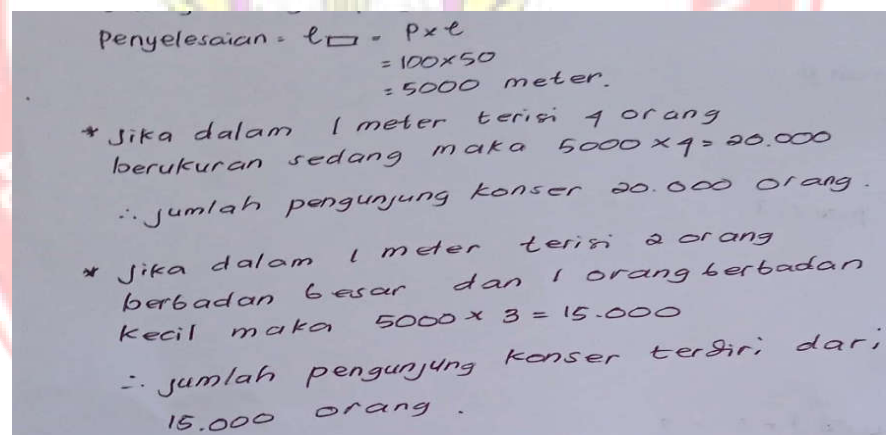 Penyelesaian = L▭ = P x l
= 100 x 50
= 5000 meter.
* Jika dalam 1 meter terisi 4 orang
berukuran sedang maka 5000 x 4 = 20.000
∴ jumlah pengunjung konser 20.000 orang.
* Jika dalam 1 meter terisi 2 orang
berbadan besar dan 1 orang berbadan
kecil maka 5000 x 3 = 15.000
∴ jumlah pengunjung konser terdiri dari
15.000 orang.